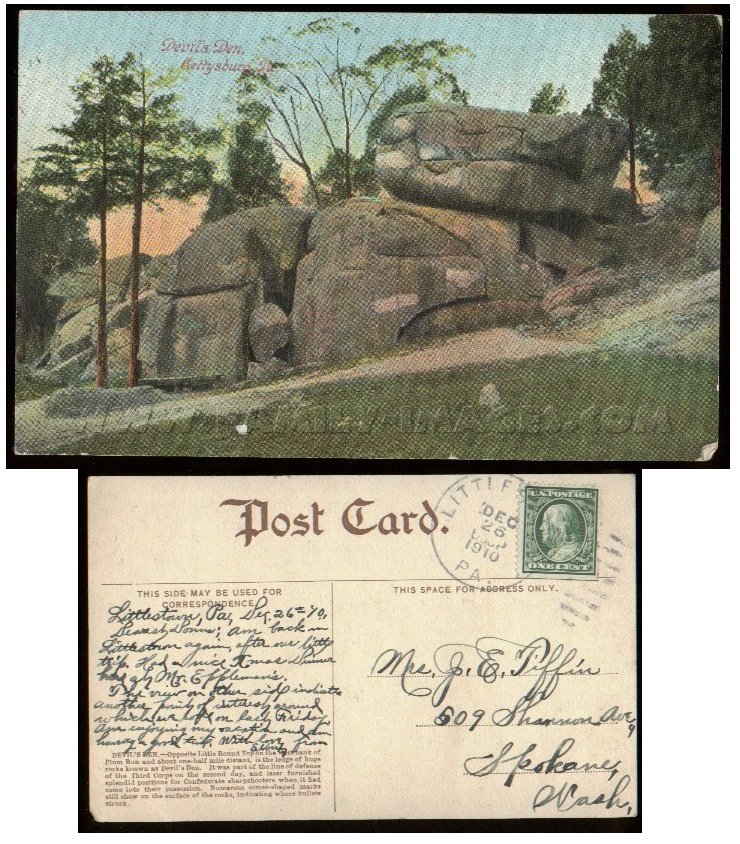 Devil's Den,
Gettysburg, Pa.
WWW.FAMILY-IMAGES.COM
Post Card.
LITTLES
DEC
26
1910
PA.
U.S. POSTAGE
ONE CENT
THIS SIDE MAY BE USED FOR
CORRESPONDENCE
THIS SPACE FOR ADDRESS ONLY.
Littlestown, Pa, Dec. 26th '10,
Dearest Donna; Am back in
Littlestown again, after our little
trip. Had a nice Xmas Dinner
here at Mr. Eppleman's.
The view on other side indicate
another point of interest around
which we on last Friday.
Am enjoying my vacation and am
having a good trip. With love
from
Mrs. J. E. Tiffin
509 Shannon Ave,
Spokane,
Wash,
DEVIL'S DEN.—Opposite Little Round Top on the west bank of
Plum Run and about one-half mile distant, is the ledge of huge
rocks known as Devil's Den. It was part of the line of defense
of the Third Corps on the second day, and later furnished
splendid positions for Confederate sharpshooters when it had
come into their possession. Numerous comet-shaped marks
still show on the surface of the rocks, indicating where bullets
struck.